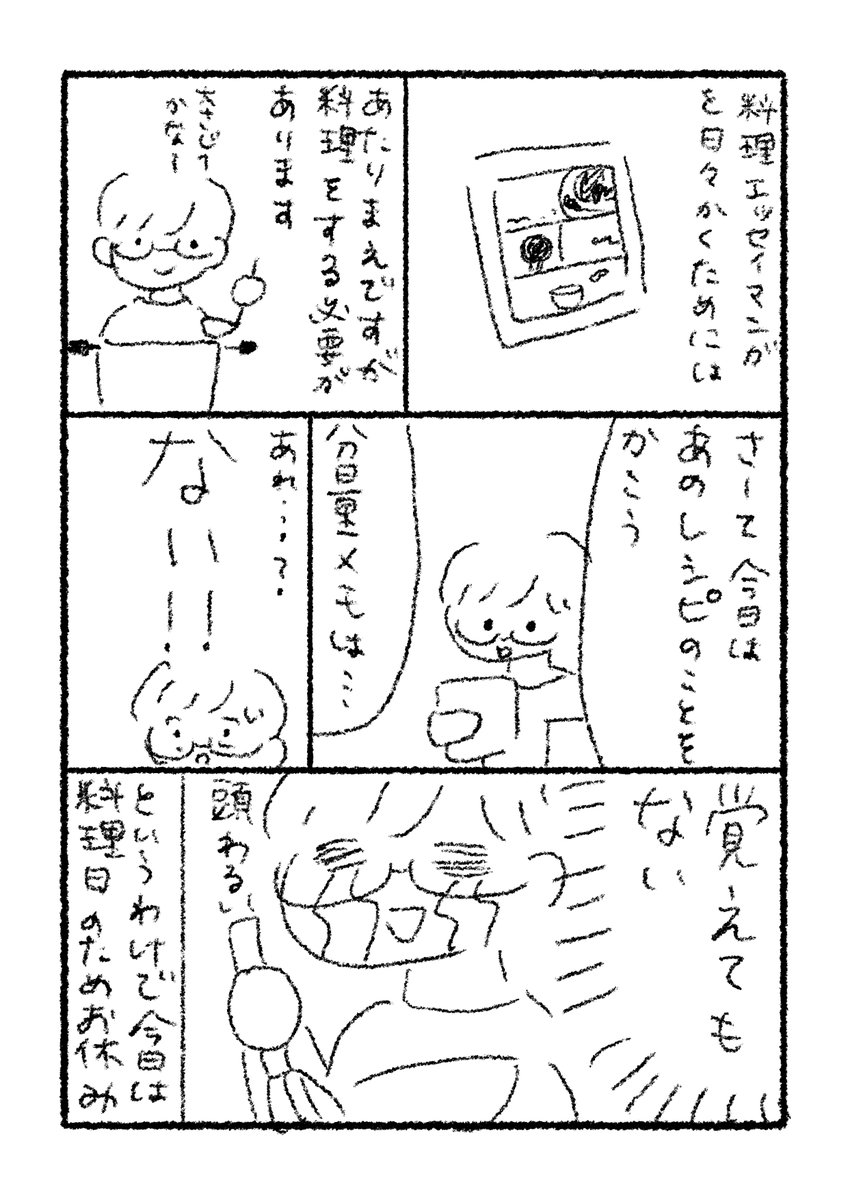 料理エッセイマンが
を日々かくためには
あたりまえですが
料理をする必要が
あります
さーて今日は
あのレシピのことを
かこう
分量メモは…
あれ…?
ない!!
覚えても
ない
頭わるい
というわけで今日は
料理日のためお休み